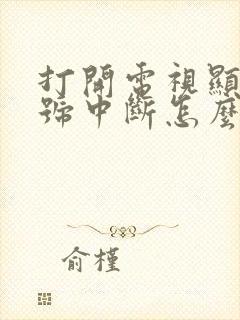 打開電視顯
號中斷怎麼
俞槿